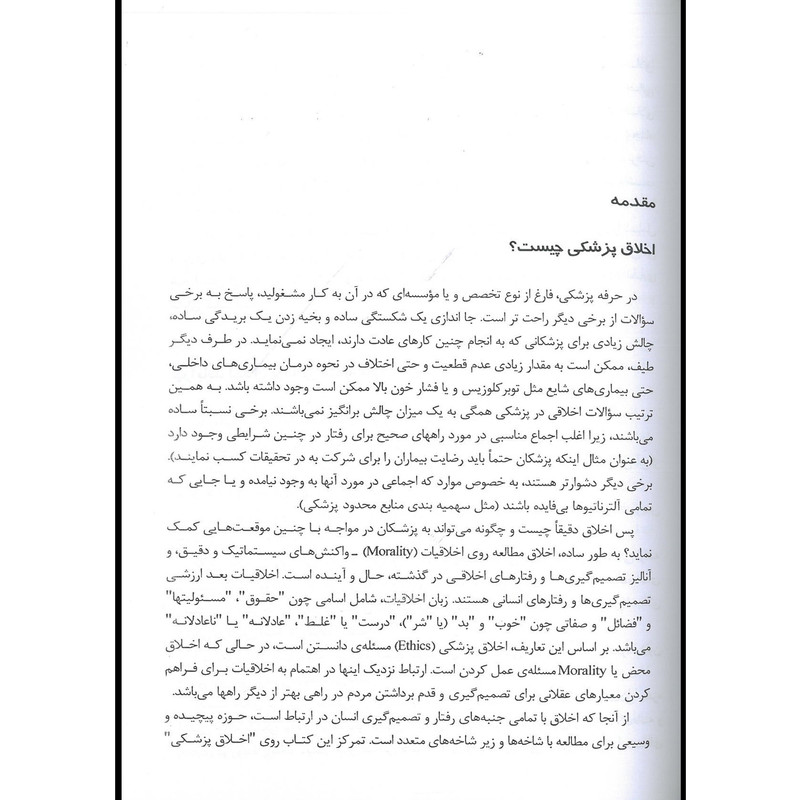 مقدمه
اخلاق پزشکی چیست؟
در حرفه پزشکی، فارغ از نوع تخصص و یا مؤسسه‌ای که در آن به کار مشغولید، پاسخ به برخی
سؤالات از برخی دیگر راحت تر است. جا اندازی یک شکستگی ساده و بخیه زدن یک بریدگی ساده،
چالش زیادی برای پزشکانی که به انجام چنین کارهای عادت دارند، ایجاد نمی‌نماید. در طرف دیگر
طیف، ممکن است به مقدار زیادی عدم قطعیت و حتی اختلاف در نحوه درمان بیماری‌های داخلی،
حتی بیماری‌های شایع مثل توبرکلوزیس و یا فشار خون بالا ممکن است وجود داشته باشد. به همین
ترتیب سؤالات اخلاقی در پزشکی همگی به یک میزان چالش برانگیز نمی‌باشند. برخی نسبتاً ساده
می‌باشند، زیرا اغلب اجماع مناسبی در مورد راههای صحیح برای رفتار در چنین شرایطی وجود دارد
(به عنوان مثال اینکه پزشکان حتماً باید رضایت بیماران را برای شرکت به در تحقیقات کسب نمایند).
برخی دیگر دشوارتر هستند، به خصوص موارد که اجماعی در مورد آنها به وجود نیامده و یا جایی که
تمامی آلترناتیوها بی‌فایده باشند (مثل سهمیه بندی منابع محدود پزشکی).
پس اخلاق دقیقاً چیست و چگونه می‌تواند به پزشکان در مواجه با چنین موقعت‌هایی کمک
نماید؟ به طور ساده، اخلاق مطالعه روی اخلاقیات (Morality) ـ واکنش‌های سیستماتیک و دقیق، و
آنالیز تصمیم‌گیری‌ها و رفتارهای اخلاقی در گذشته، حال و آینده است. اخلاقیات بعد ارزشی
تصمیم‌گیری‌ها و رفتارهای انسانی هستند. زبان اخلاقیات، شامل اسامی چون "حقوق"، "مسئولیتها"
و "فضائل" و صفاتی چون "خوب" و "بد" (یا "شر")، "درست" یا "غلط"، "عادلانه" یا "ناعادلانه"
می‌باشد. بر اساس این تعاریف، اخلاق پزشکی (Ethics) مسئله‌ی دانستن است، در حالی که اخلاق
محض یا Morality مسئله‌ی عمل کردن است. ارتباط نزدیک اینها در اهتمام به اخلاقیات برای فراهم
کردن معیارهای عقلانی برای تصمیم‌گیری و قدم برداشتن مردم در راهی بهتر از دیگر راهها می‌باشد.
از آنجا که اخلاق با تمامی جنبه‌های رفتار و تصمیم‌گیری انسان در ارتباط است، حوزه پیچیده و
وسیعی برای مطالعه با شاخه‌ها و زیر شاخه‌های متعدد است. تمرکز این کتاب روی "اخلاق پزشکی"